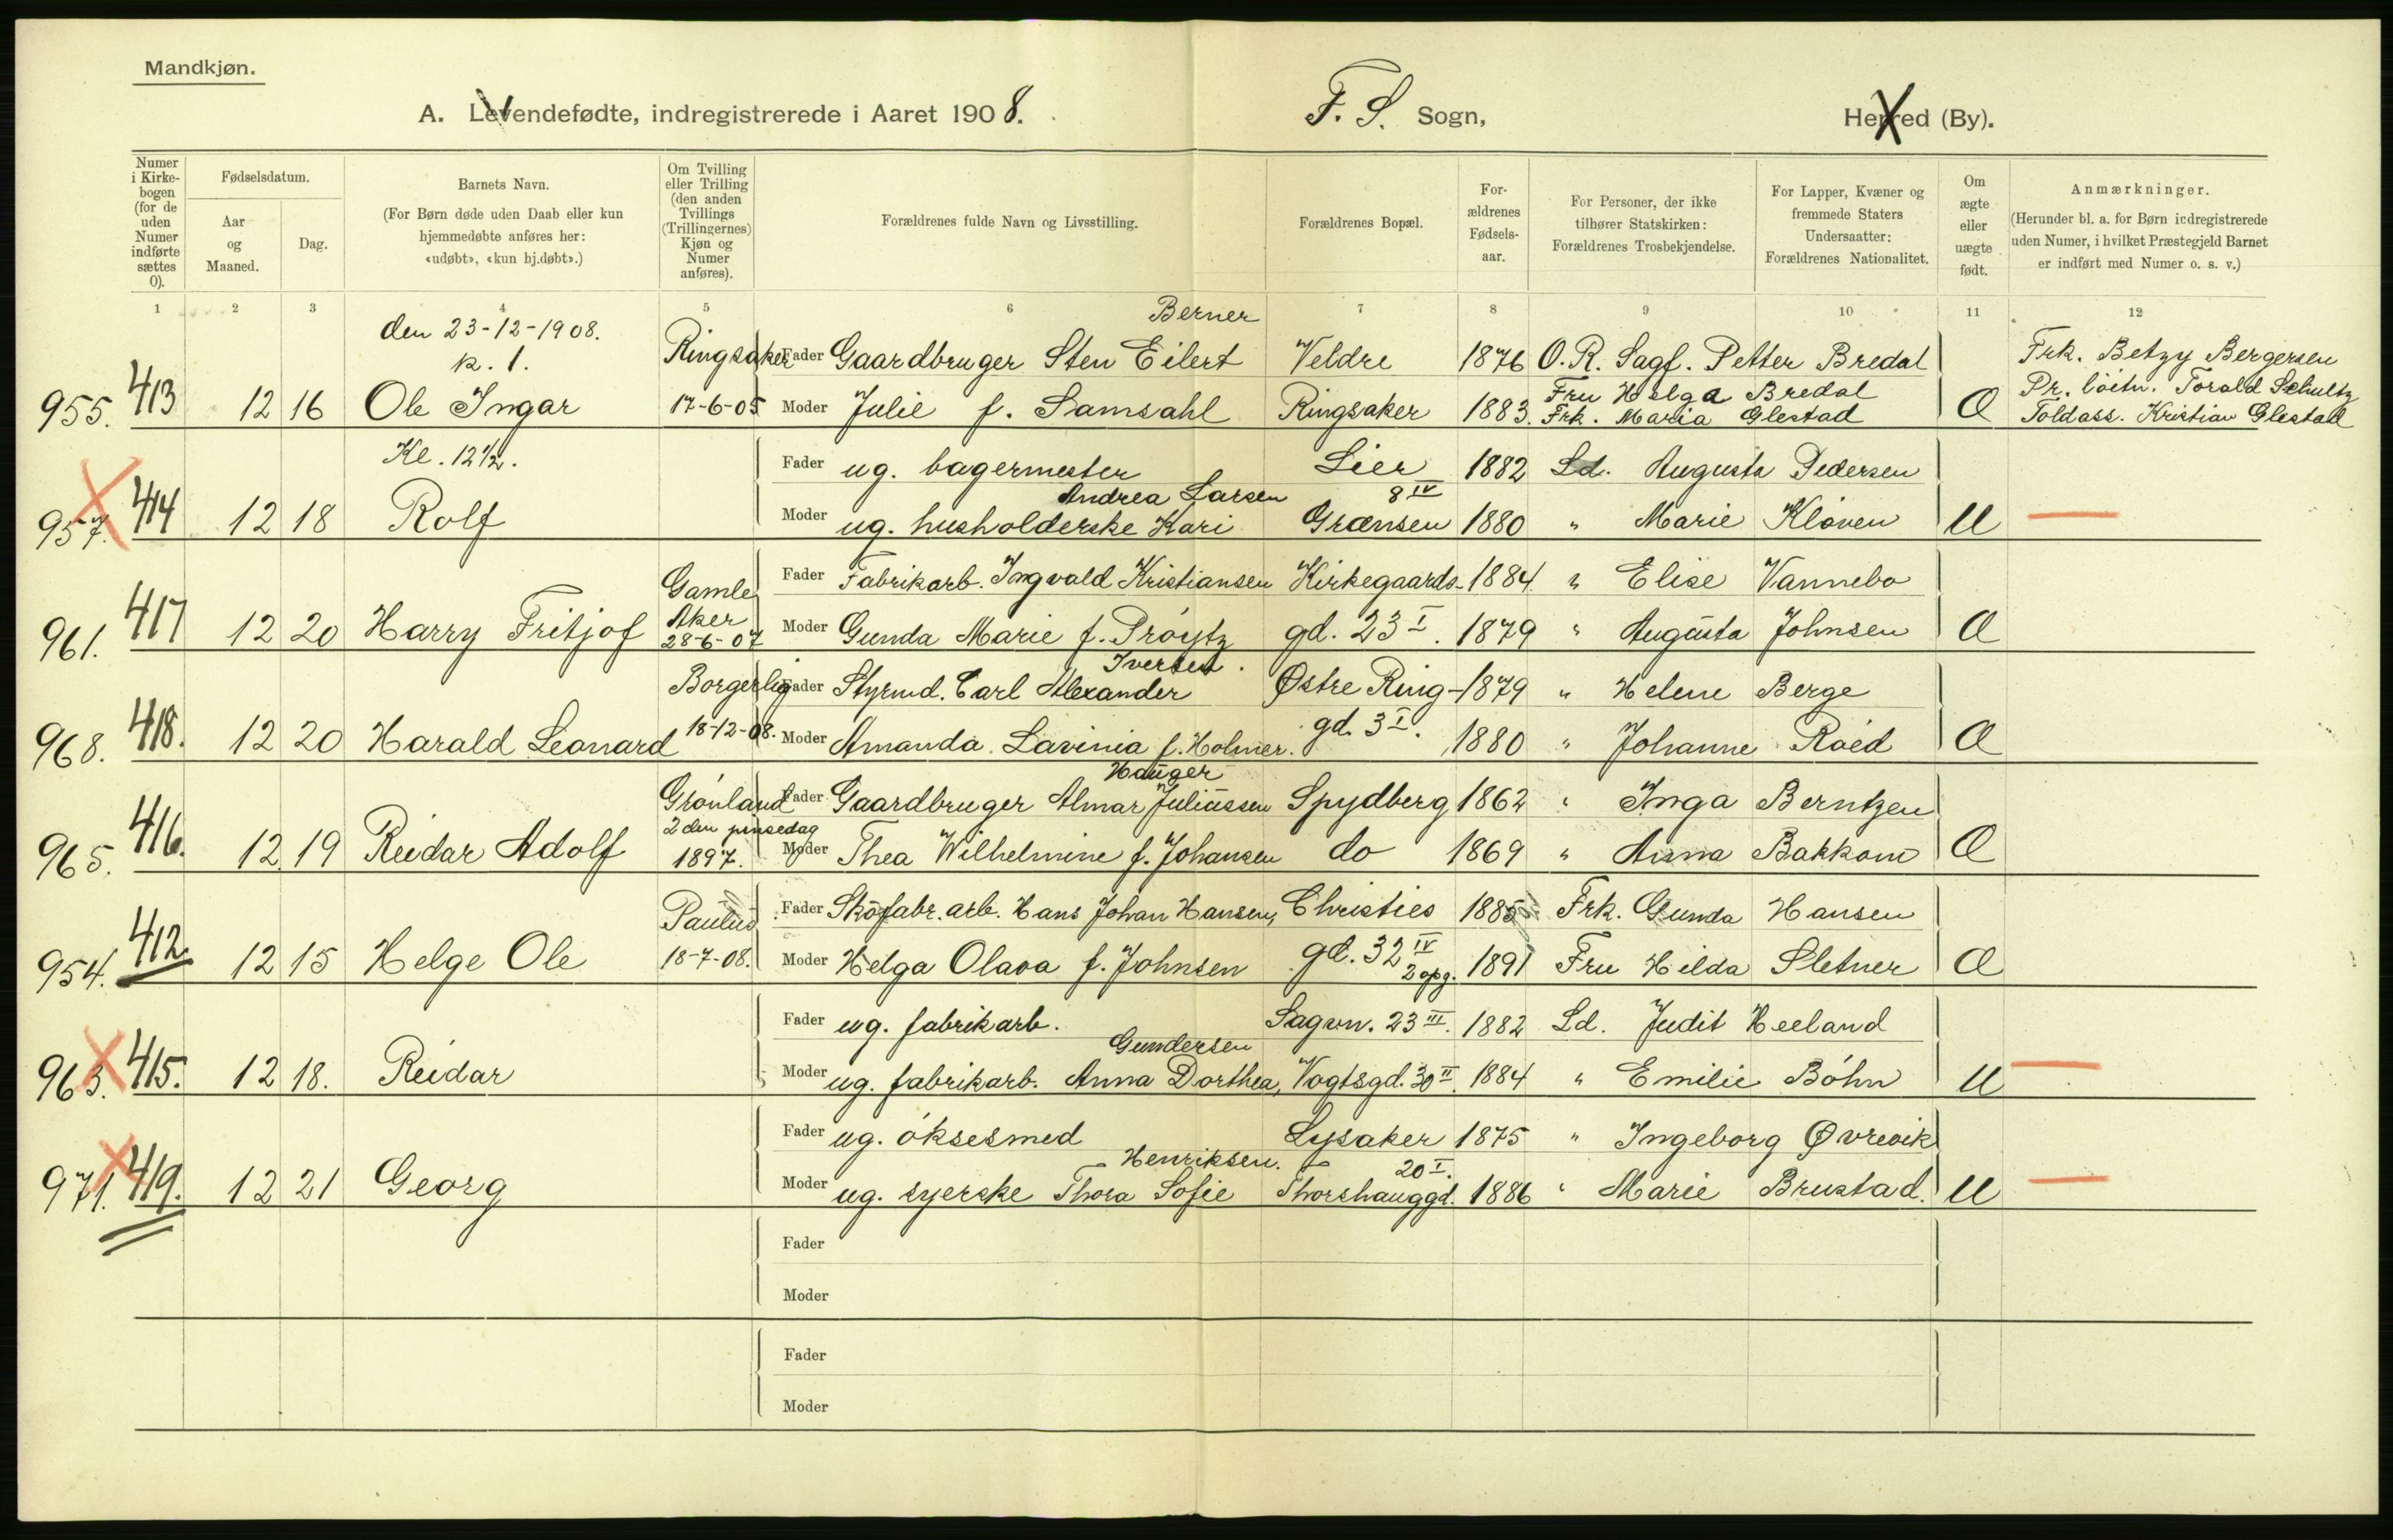 Mandkjøn.
A. Levendefødte, indregistrerede i Aaret 1908. F. S. Sogn, Herred (By).
Numer i Kirke-bogen (for de uden Numer indførte sættes 0).
Fødselsdatum.
Aar og Maaned.
Dag.
Barnets Navn.
(For Børn døde uden Daab eller kun hjemmedøbte anføres her: «udøbt», «kun hj.døbt».)
Om Tvilling eller Trilling (den anden Tvillings (Trillingernes) Kjøn og Numer anføres).
Forældrenes fulde Navn og Livsstilling.
Forældrenes Bopæl.
For-ældrenes Fødsels-aar.
For Personer, der ikke tilhører Statskirken: Forældrenes Trosbekjendelse.
For Lapper, Kvæner og fremmede Staters Undersaatter: Forældrenes Nationalitet.
Om ægte eller uægte født.
Anmærkninger.
(Herunder bl. a. for Børn icdregistrerede uden Numer, i hvilket Præstegjeld Barnet er indført med Numer o. s. v.)
1 2 3 4 5 6 7 8 9 10 11 12
den 23-12-1908.
k. 1.
Berner
Ringsaker Fader Gaardbruger Sten Eilert Veldre 1876 O. R. Sagf. Petter Bredal Frk. Betzy Bergersen
Fru Helga Bredal Pr. löitn. Torald Schultz
955. 413 12 16 Ole Ingar 17-6-05 Moder Julie f. Samsahl Ringsaker 1883. Frk. Maria Glestad Æ Toldass. Kristian Glestad
Kl. 12½.
Fader ug. bagermester Lier 1882 Ld. Augusta Pedersen
Andrea Larsen 8 IV
957. 414 12 18 Rolf Moder ug. husholderske Kari Grænsen 1880 " Marie Kloven U —
Gamle Fader Fabrikarb. Ingvald Kristiansen Kirkegaards- 1884. " Elise Vannebo
Aker
961. 417 12 20 Harry Fritjof 28-6-07 Moder Gunda Marie f. Pröytz gd. 23 I. 1879 " Augusta Johnsen Æ
Iversen.
Borgerlig Fader Styrmd. Carl Alexander Østre Ring- 1879 " Helene Berge
968. 418. 12 20 Harald Leonard 18-12-08. Moder Amanda Lavinia f. Holmer. gd. 3 I. 1880 " Johanne Röed Æ
Hauger
Grönland Fader Gaardbruger Almar Juliussen Spydberg 1862 " Inga Berntzen
2den pinsedag
965. 416. 12 19 Reidar Adolf 1897. Moder Thea Wilhelmine f. Johansen do 1869 " Anna Bakkom Æ
Paulus Fader Sköfabr. arb. Hans Johan Hansen, Christies 1885 Frk. Gunda Hansen
954. 412. 12 15 Helge Ole 18-7-08. Moder Helga Olava f. Johnsen gd. 32 IV 2 opg. 1891 Fru Hilda Sletner Æ
Fader ug. fabrikarb. Sagvn. 23 III. 1882 Ld. Judit Heeland
Gundersen
963. 415. 12 18. Reidar Moder ug. fabrikarb. Anna Dorthea, Vogtsgd. 30 II. 1884 " Emilie Böhn U —
Fader ug. öksesmed Lysaker 1875 " Ingeborg Øvrevik
Henriksen. 20 I.
971. 419. 12 21 Georg Moder ug. syerske Thora Sofie Thorshauggd. 1886 " Marie Brustad. U —
Fader
Moder
Fader
Moder